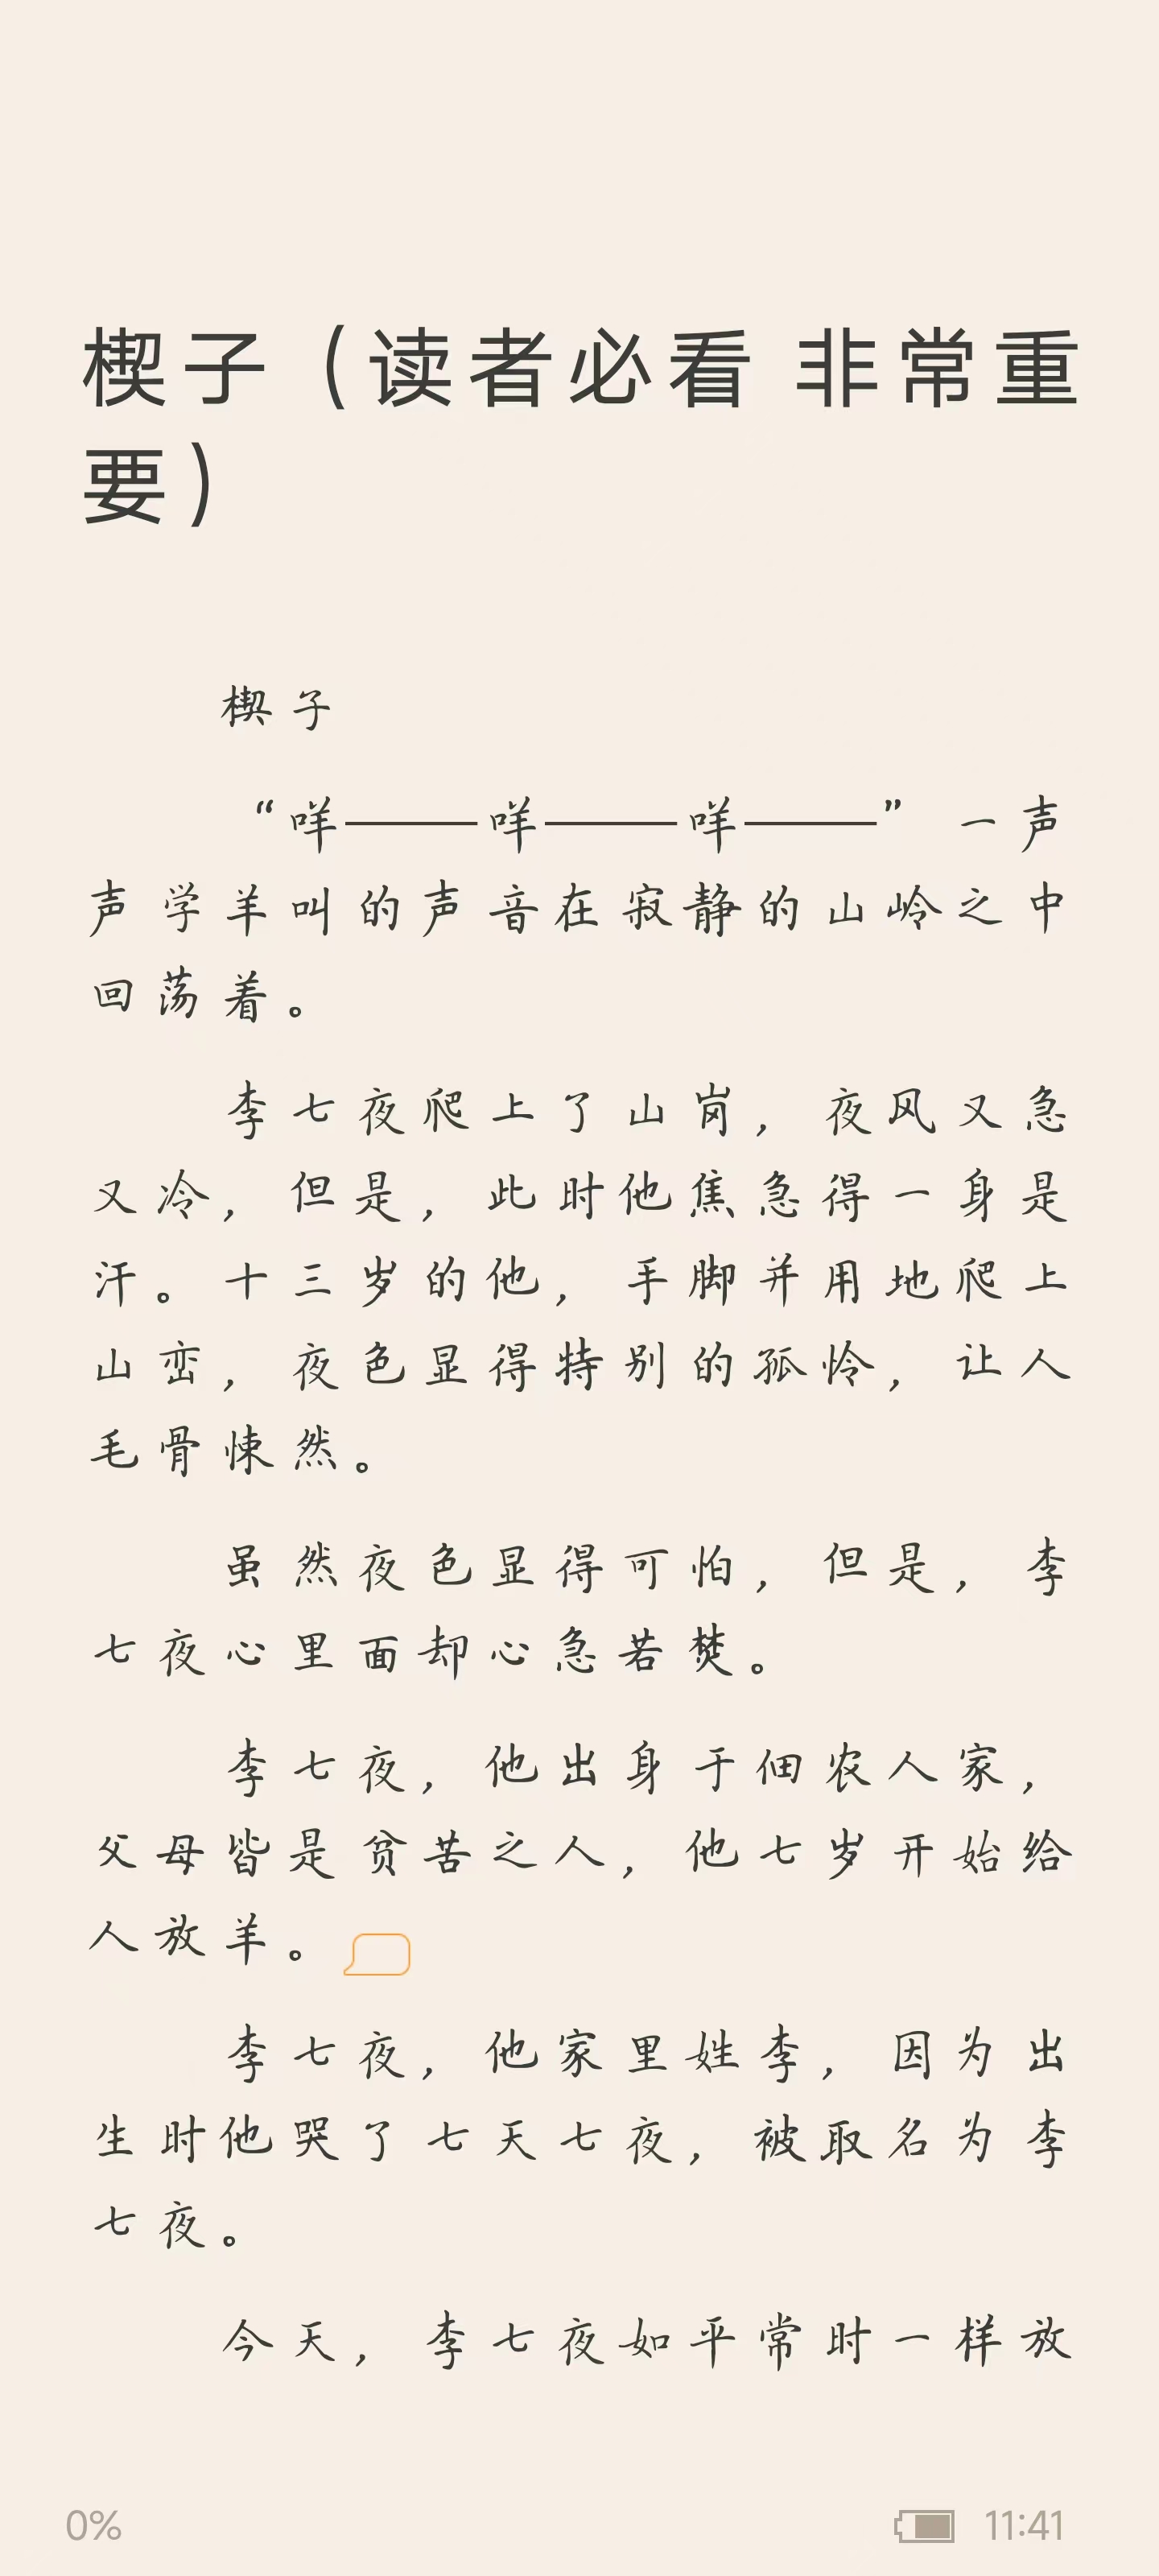 楔子（读者必看 非常重
要）
楔子
“咩——咩——咩——” 一声
声学羊叫的声音在寂静的山岭之中
回荡着。
李七夜爬上了山岗，夜风又急
又冷，但是，此时他焦急得一身是
汗。十三岁的他，手脚并用地爬上
山峦，夜色显得特别的孤怜，让人
毛骨悚然。
虽然夜色显得可怕，但是，李
七夜心里面却心急若焚。
李七夜，他出身于佃农人家，
父母皆是贫苦之人，他七岁开始给
人放羊。
李七夜，他家里姓李，因为出
生时他哭了七天七夜，被取名为李
七夜。
今天，李七夜如平常时一样放
0%
11:41